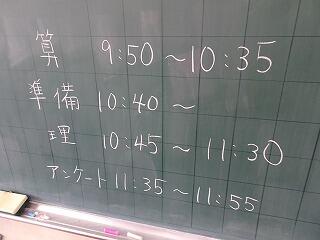 算 9:50～10:35
準備 10:40～
理 10:45～11:30
アンケート11:35～11:55